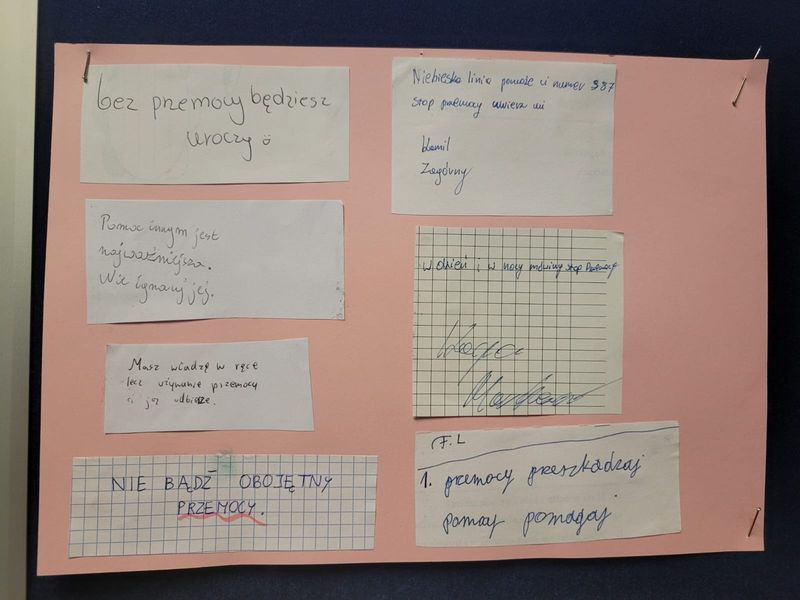 bez przemocy będziesz
uroczy
Pomoc innym jest
najważniejsza.
Nie ignoruj jej.
Masz władzę w ręce
lecz używanie przemocy
ci ją odbierze.
NIE BĄDŹ OBOJĘTNY
PRZEMOCY.
Niebieska linia pomoże ci numer
stop przemocy uwierz mi
Kamil
Zagórny
w dzień i w nocy mówimy stop Przemocy
Kaya
F.L
1. przemocy przeszkadzaj
pomocy pomagaj